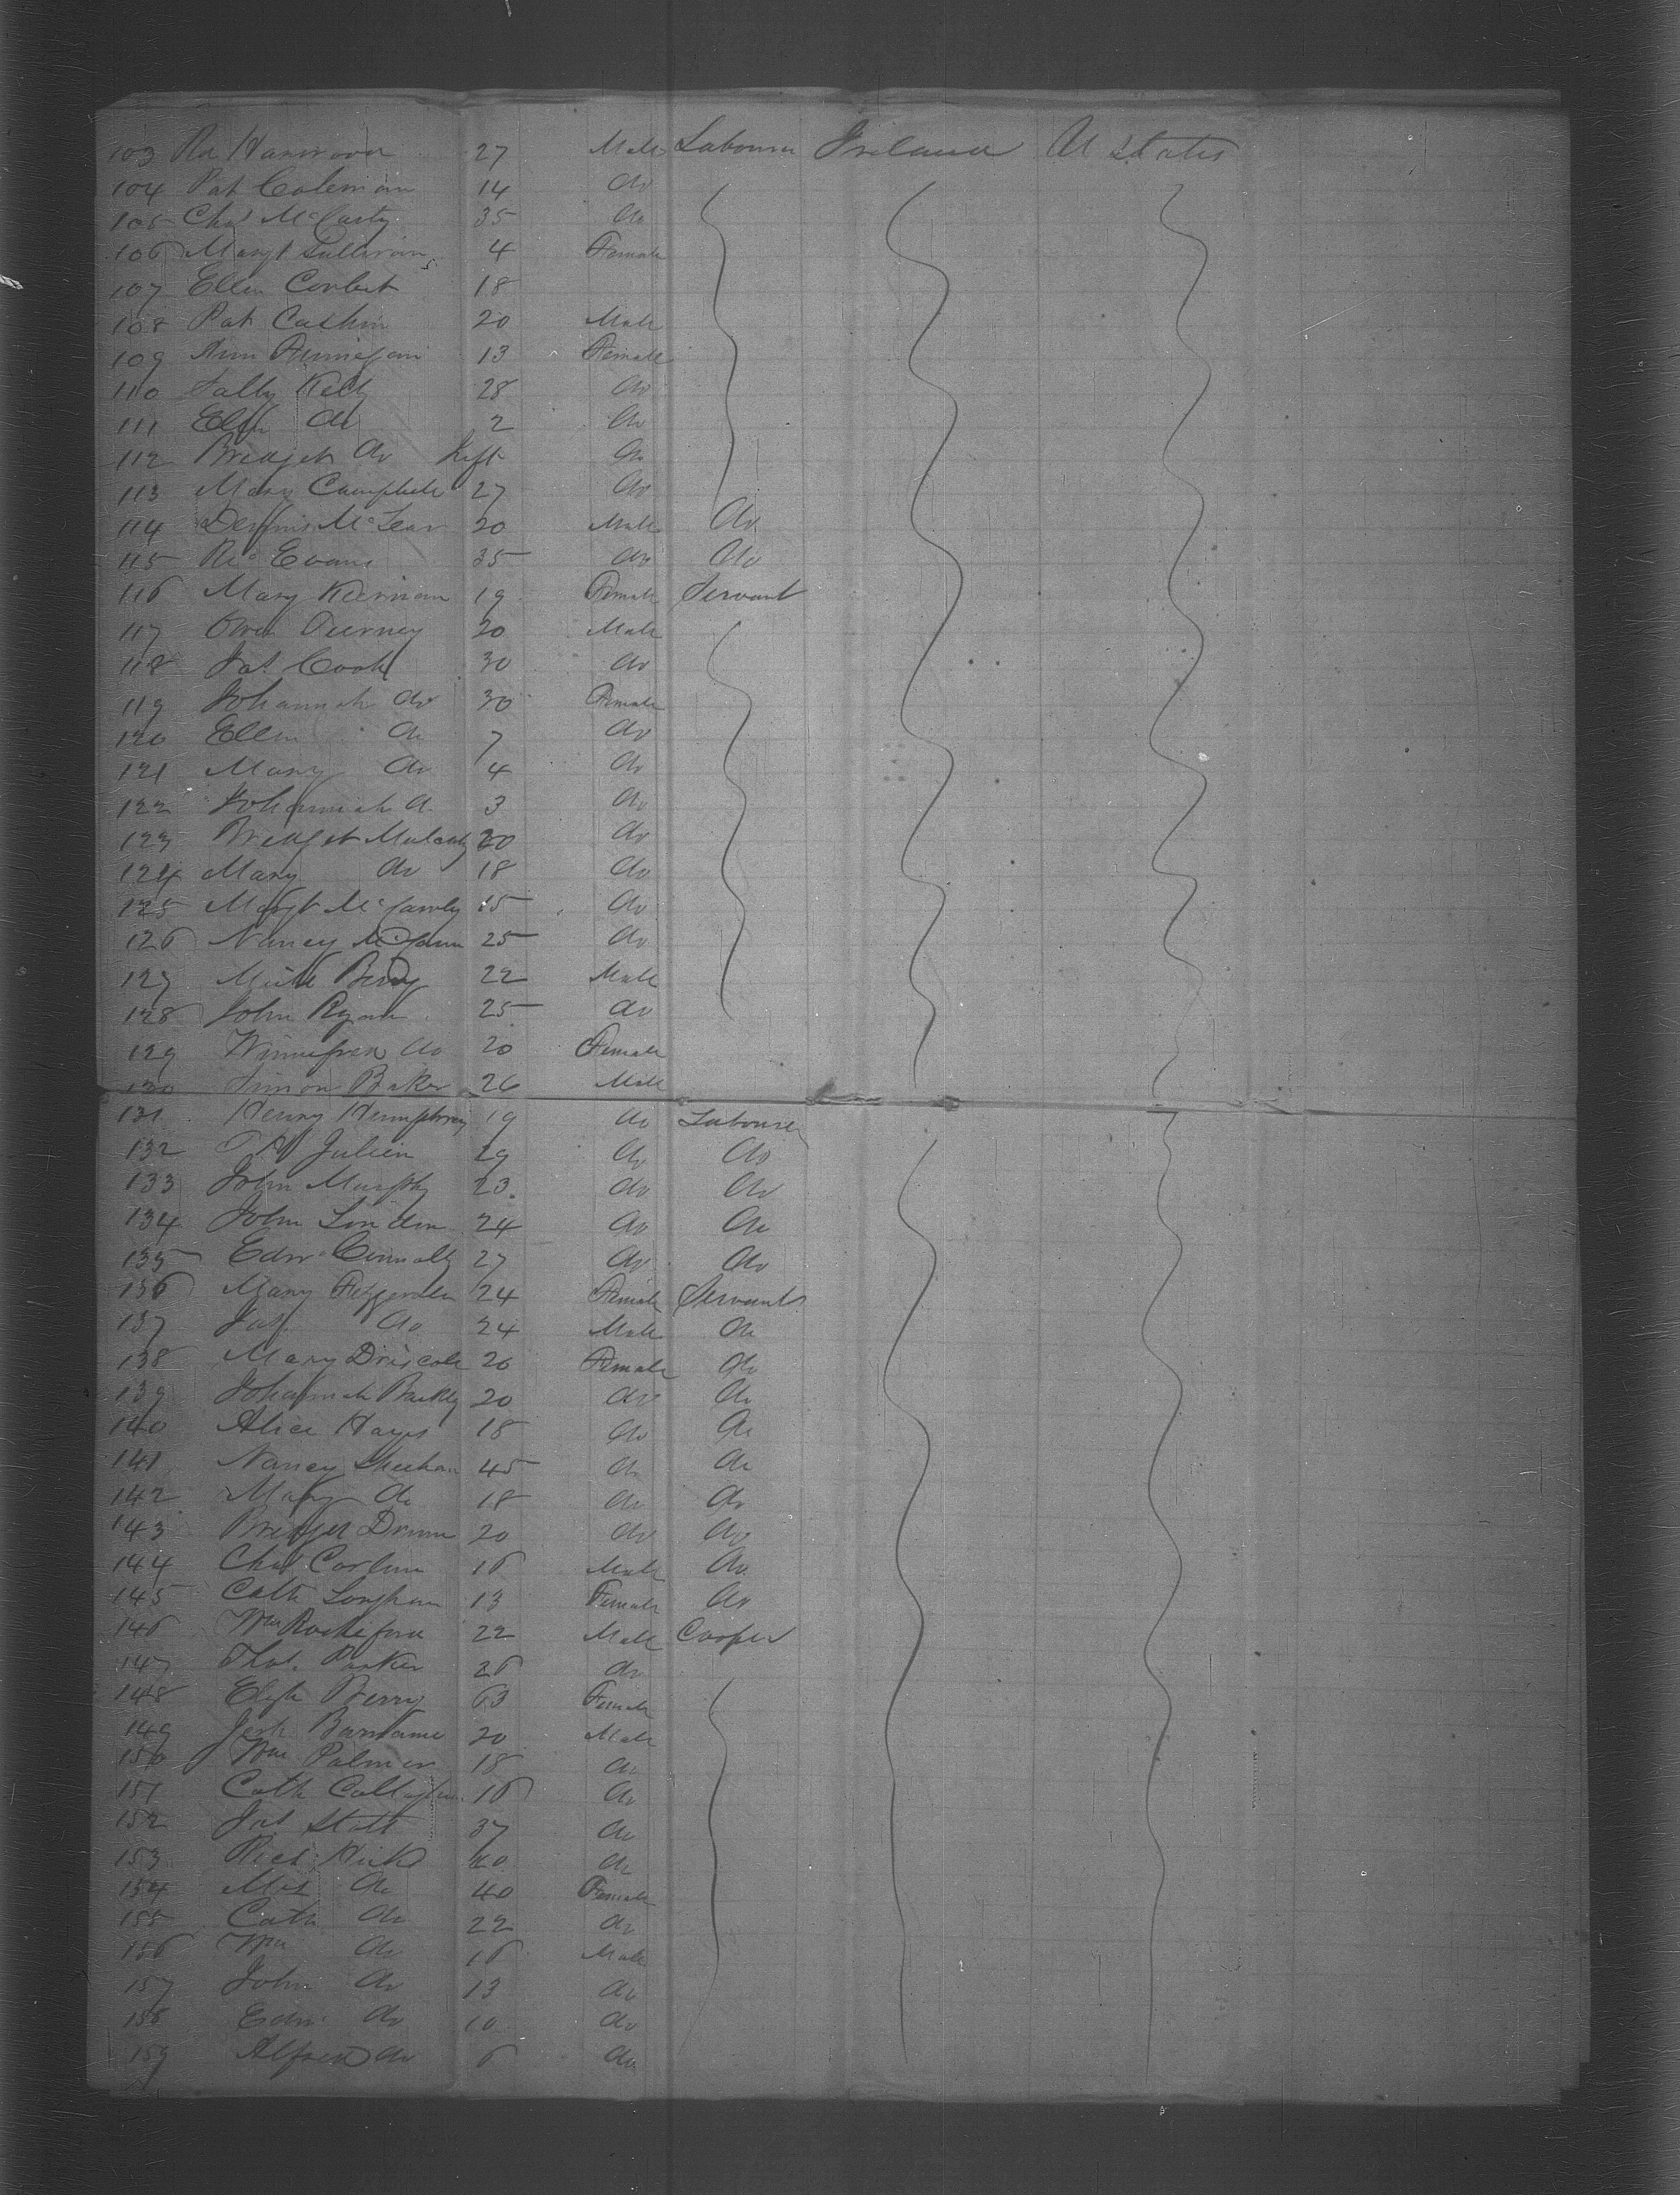 103 Rd Harwood 27 Male Labourer Ireland U States
104 Pat Coleman 14 do
105 Chas McCarty 35 do
106 Margt Sullivan 4 Female
107 Ellen Corbet 18
108 Pat Cashin 20 Male
109 Ann Finnegan 13 Female
110 Sally Kelly 28 do
111 Elizh do 2 do
112 Bridget do do
113 Mary Campbell 27 do
114 Dennis McLear 20 Male do
115 Rd Evans 35 do do
116 Mary Kiernan 19 Female Servant
117 Owen 20 Male
118 Jas Cook 30 do
119 Johannah do 30 Female
120 Ellen do 7 do
121 Mary do 4 do
122 Johannah do 3 do
123 Bridget Mulcahy 20 do
124 Mary do 18 do
125 Margt 15 do
126 Nancy 25 do
127 Berry 22 Male
128 John Ryan 25 do
129 Winnefred do 20 Female
130 Simon Baker 26 Male
131 Henry Humphrey 19 do Labourer
132 Julien 29 do do
133 John Murphy 23 do do
134 John Lindon 24 do do
135 Edwd Connolly 27 do do
136 Mary Fitzgerald 24 Female Servants
137 Jas do 24 Male do
138 Mary Driscole 26 Female do
139 Johannah Buckley 20 do do
140 Alice Hayes 18 do do
141 Nancy Sheehan 45 do do
142 Mary do 18 do do
143 Bridget 20 do do
144 Chas 16 Male do
145 Cath 13 Female do
146 Wm Rochford 22 Male Cooper
147 Thos. Parker 26 do
148 Elizh Berry 63 Female
149 20 Male
150 Wm Palmer 18 do
151 Cath Callaghan 16 do
152 Jas Stott 37 do
153 Richd Hicks 40 do
154 Mrs do 40 Female
155 Cath do 22 do
156 Wm do 16 Male
157 John do 13 do
158 Edwd do 10 do
159 Alfred do 6 do